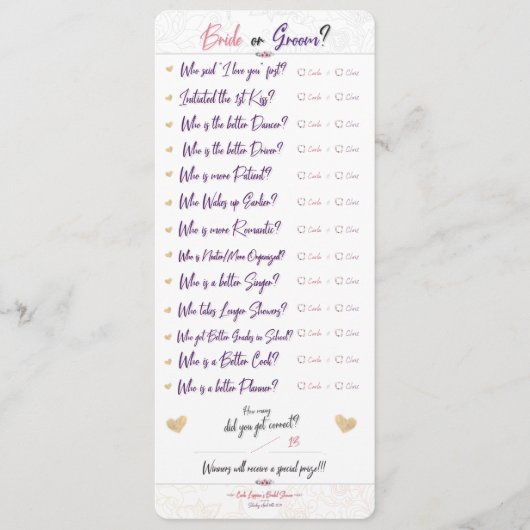 Bride or Groom?
Who said "I love you" first? Carla Clint
Initiated the 1st Kiss? Carla Clint
Who is the better Dancer? Carla Clint
Who is the better Driver? Carla Clint
Who is more Patient? Carla Clint
Who Wakes up Earlier? Carla Clint
Who is more Romantic? Carla Clint
Who is Neater/More Organized? Carla Clint
Who is a better Singer? Carla Clint
Who takes Longer Showers? Carla Clint
Who got Better Grades in School? Carla Clint
Who is a Better Cook? Carla Clint
Who is a better Planner? Carla Clint
How many
did you get correct?
/ 13
Winners will receive a special prize!!!
Bridal Shower